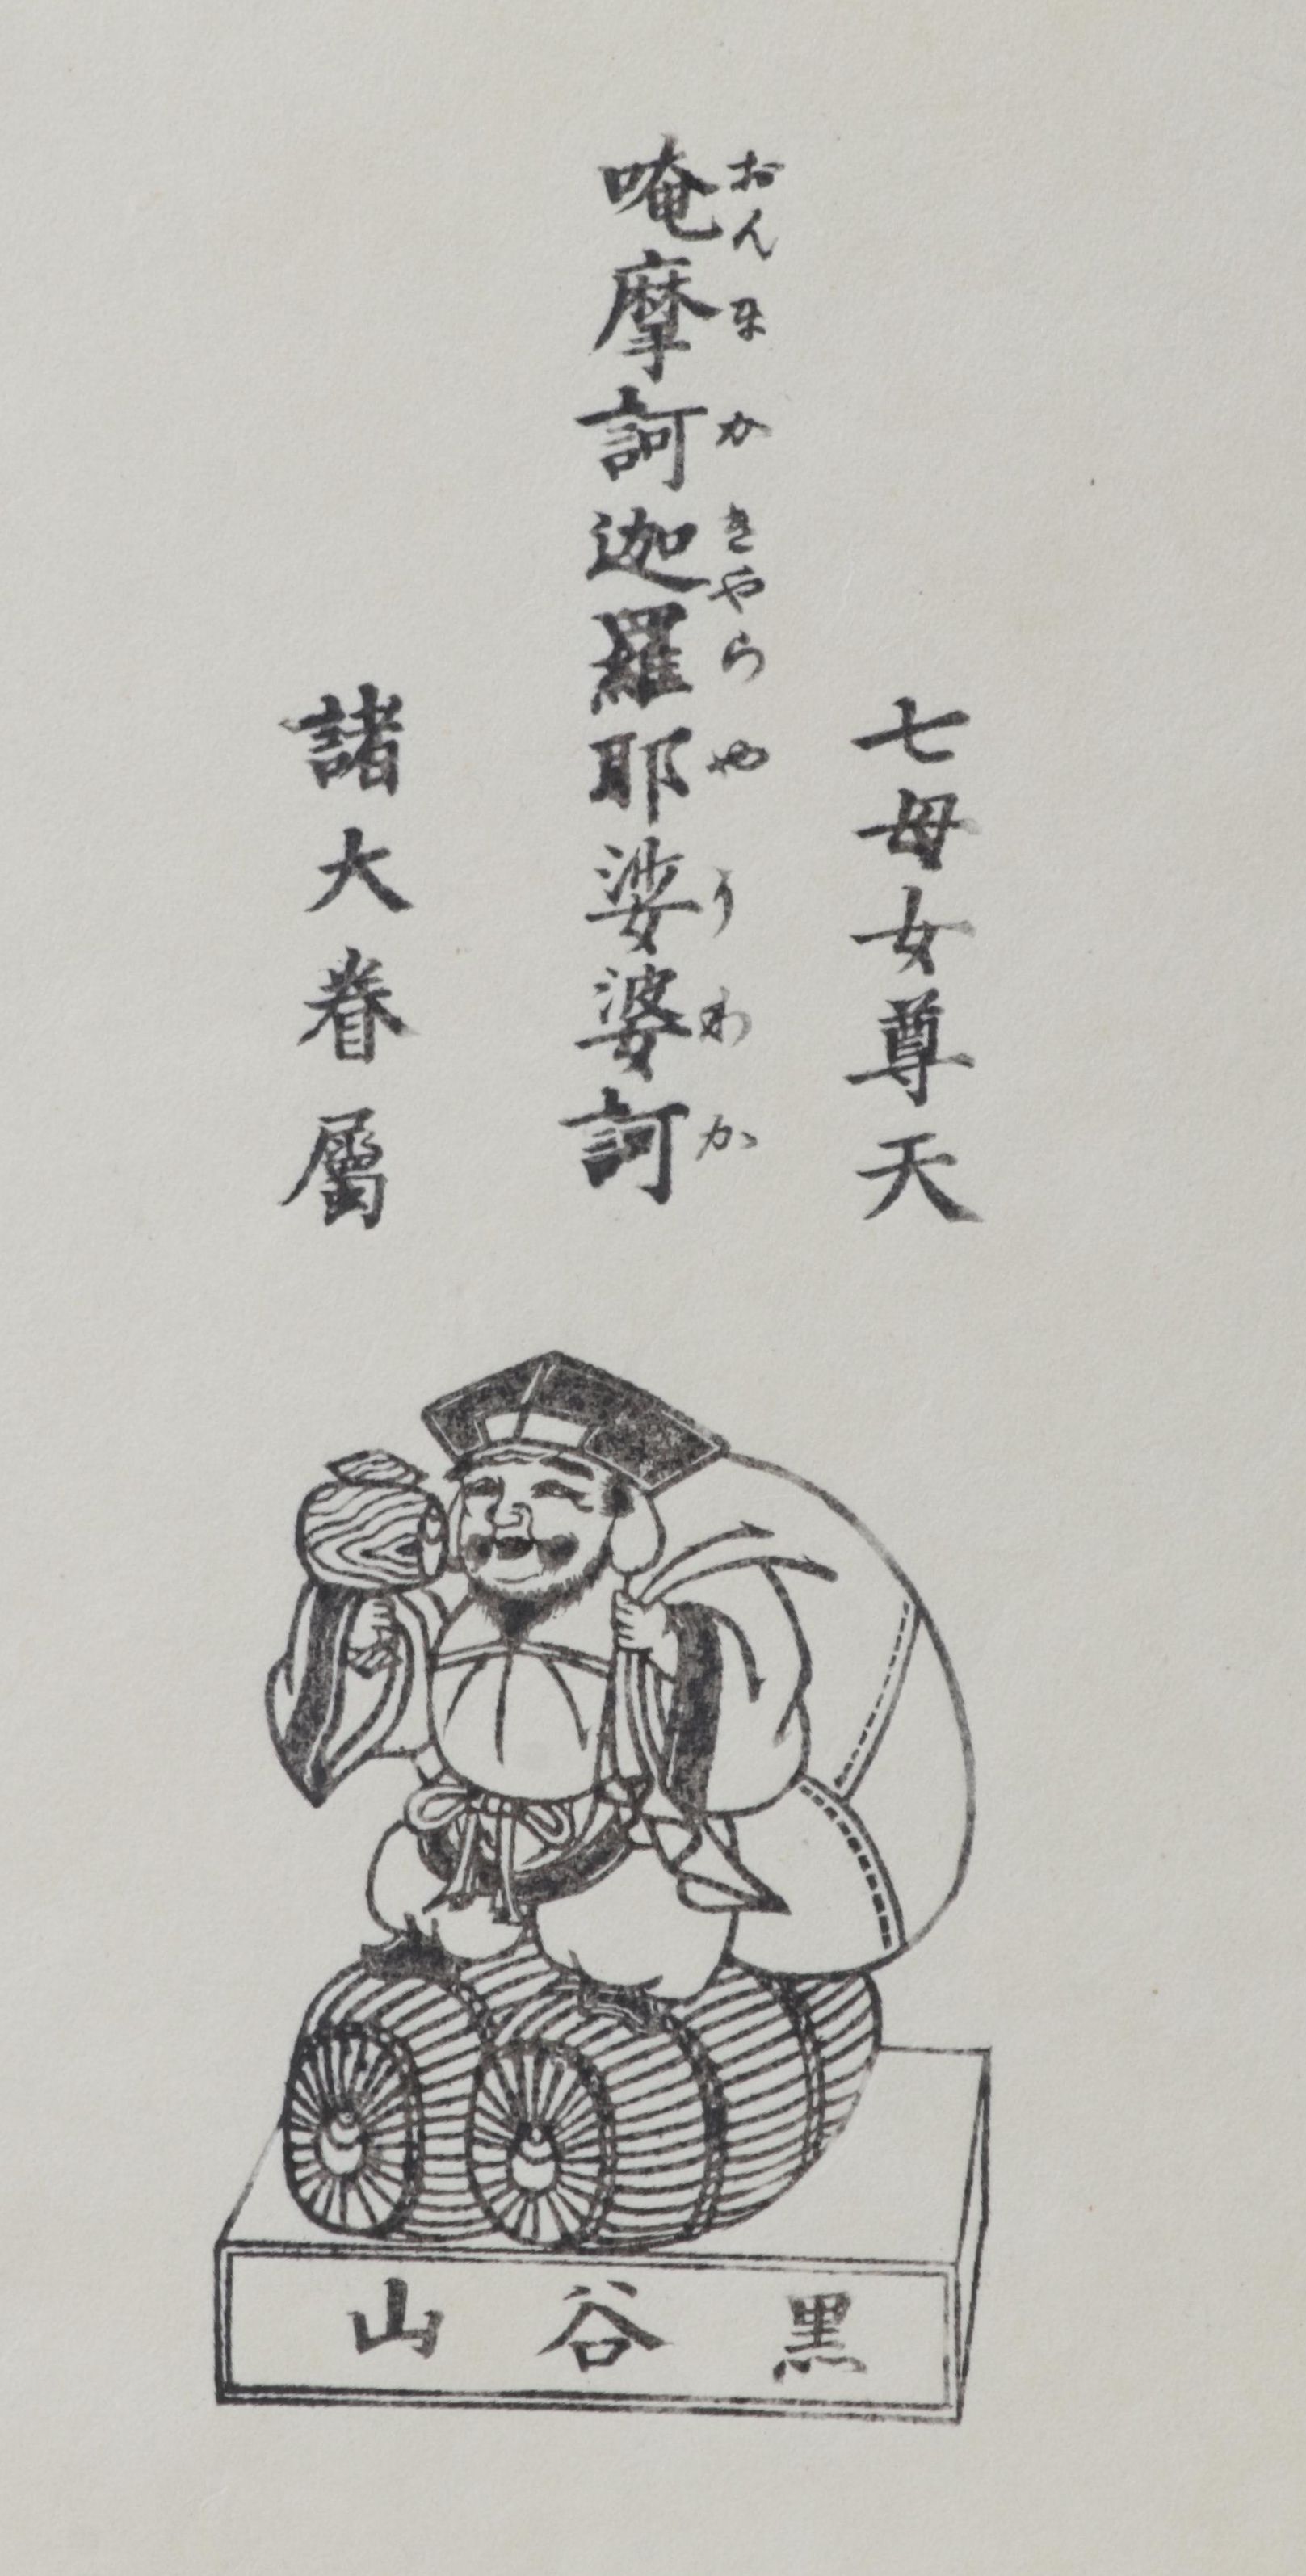 七母女尊天
唵摩訶迦羅耶娑婆訶
おんまかきやらやうわか
諸大眷屬
黒谷山